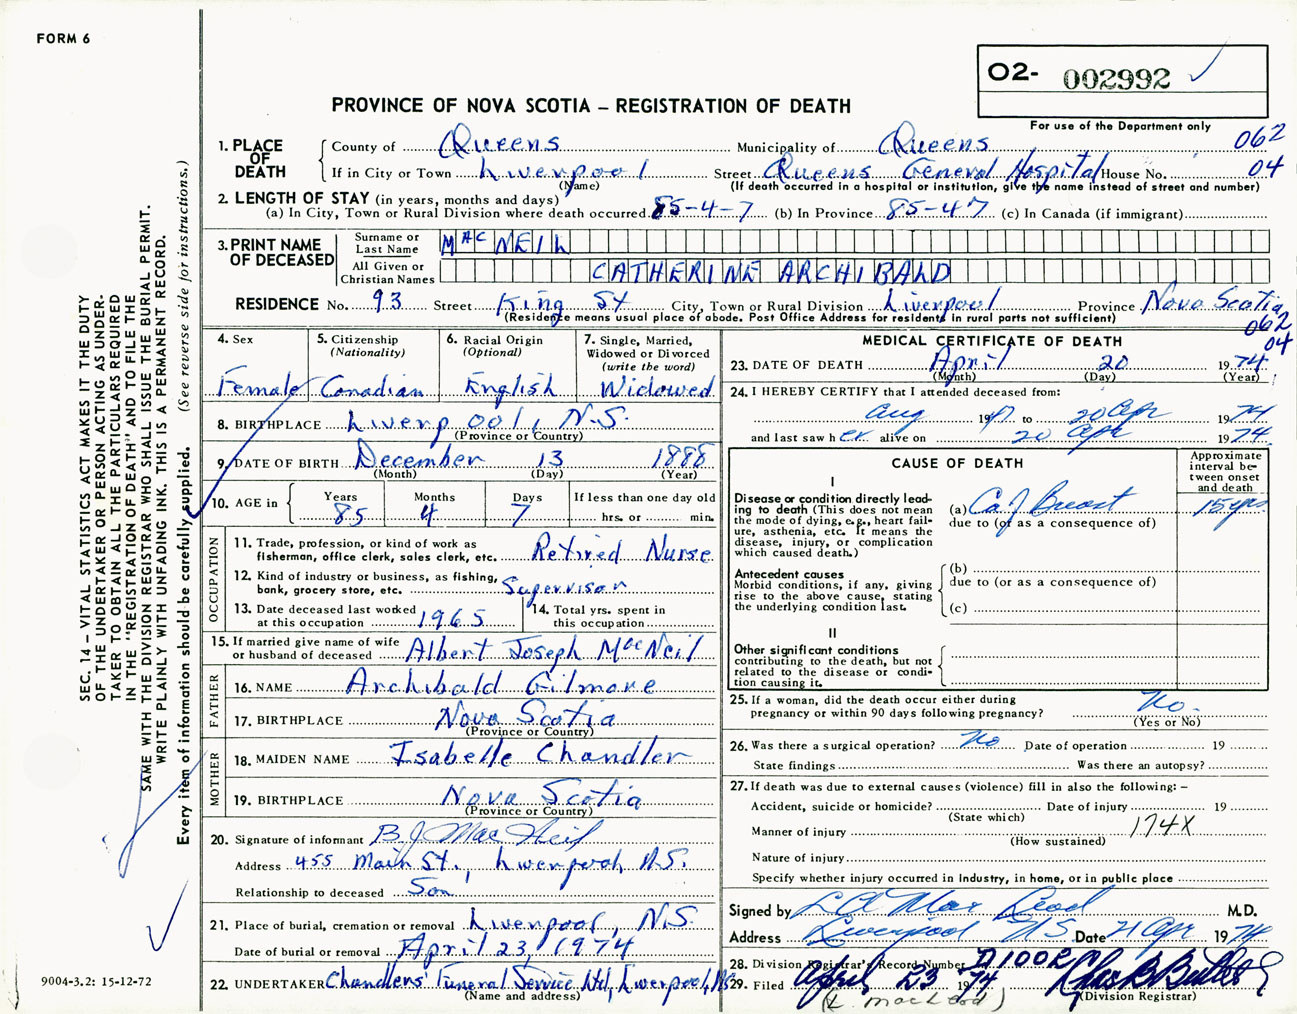 FORM 6
O2- 002992
PROVINCE OF NOVA SCOTIA – REGISTRATION OF DEATH
For use of the Department only
062
04
1. PLACE OF DEATH
County of Queens Municipality of Queens
If in City or Town Liverpool Street Queens General Hospital House No.
(Name) (If death occurred in a hospital or institution, give the name instead of street and number)
2. LENGTH OF STAY (in years, months and days)
(a) In City, Town or Rural Division where death occurred 85-4-7 (b) In Province 85-4-7 (c) In Canada (if immigrant)
3. PRINT NAME OF DECEASED
Surname or Last Name MAC NEIL
All Given or Christian Names CATHERINE ARCHIBALD
RESIDENCE No. 93 Street King St City, Town or Rural Division Liverpool Province Nova Scotia
(Residence means usual place of abode. Post Office Address for residents in rural parts not sufficient)
062
04
4. Sex Female
5. Citizenship (Nationality) Canadian
6. Racial Origin (Optional) English
7. Single, Married, Widowed or Divorced (write the word) Widowed
8. BIRTHPLACE Liverpool, N.S.
(Province or Country)
9. DATE OF BIRTH December 13 1888
(Month) (Day) (Year)
10. AGE in Years 85 Months 4 Days 7 If less than one day old hrs. or min.
OCCUPATION
11. Trade, profession, or kind of work as fisherman, office clerk, sales clerk, etc. Retired Nurse
12. Kind of industry or business, as fishing, bank, grocery store, etc. Supervisor
13. Date deceased last worked at this occupation 1965
14. Total yrs. spent in this occupation
15. If married give name of wife or husband of deceased Albert Joseph MacNeil
FATHER
16. NAME Archibald Gilmore
17. BIRTHPLACE Nova Scotia
(Province or Country)
MOTHER
18. MAIDEN NAME Isabelle Chandler
19. BIRTHPLACE Nova Scotia
(Province or Country)
20. Signature of informant B. J. MacNeil
Address 455 Main St., Liverpool, N.S.
Relationship to deceased Son
21. Place of burial, cremation or removal Liverpool, N.S.
Date of burial or removal April 23, 1974
22. UNDERTAKER Chandlers' Funeral Service Ltd, Liverpool, NS
(Name and address)
MEDICAL CERTIFICATE OF DEATH
23. DATE OF DEATH April 20 1974
(Month) (Day) (Year)
24. I HEREBY CERTIFY that I attended deceased from:
Aug 19 to 20 Apr 1974
and last saw her alive on 20 Apr 1974
CAUSE OF DEATH
Approximate interval between onset and death
I
Disease or condition directly leading to death (This does not mean the mode of dying, e.g., heart failure, asthenia, etc. It means the disease, injury, or complication which caused death.)
(a) Ca of Breast 15 yrs
due to (or as a consequence of)
Antecedent causes
Morbid conditions, if any, giving rise to the above cause, stating the underlying condition last.
(b)
due to (or as a consequence of)
(c)
II
Other significant conditions
contributing to the death, but not related to the disease or condition causing it.
25. If a woman, did the death occur either during pregnancy or within 90 days following pregnancy? No.
(Yes or No)
26. Was there a surgical operation? No Date of operation 19
State findings Was there an autopsy?
27. If death was due to external causes (violence) fill in also the following: –
Accident, suicide or homicide? Date of injury 19
(State which)
Manner of injury 174X
(How sustained)
Nature of injury
Specify whether injury occurred in industry, in home, or in public place
Signed by M.D.
Address Liverpool NS Date 21 Apr 1974
28. Division Registrar's Record Number
29. Filed April 23 1974
(Division Registrar)
(L. MacLeod)
SEC. 14 – VITAL STATISTICS ACT MAKES IT THE DUTY
OF THE UNDERTAKER OR PERSON ACTING AS UNDER-
TAKER TO OBTAIN ALL THE PARTICULARS REQUIRED
IN THE "REGISTRATION OF DEATH" AND TO FILE THE
SAME WITH THE DIVISION REGISTRAR WHO SHALL ISSUE THE BURIAL PERMIT.
WRITE PLAINLY WITH UNFADING INK. THIS IS A PERMANENT RECORD.
Every item of information should be carefully supplied. (See reverse side for instructions.)
9004-3.2: 15-12-72